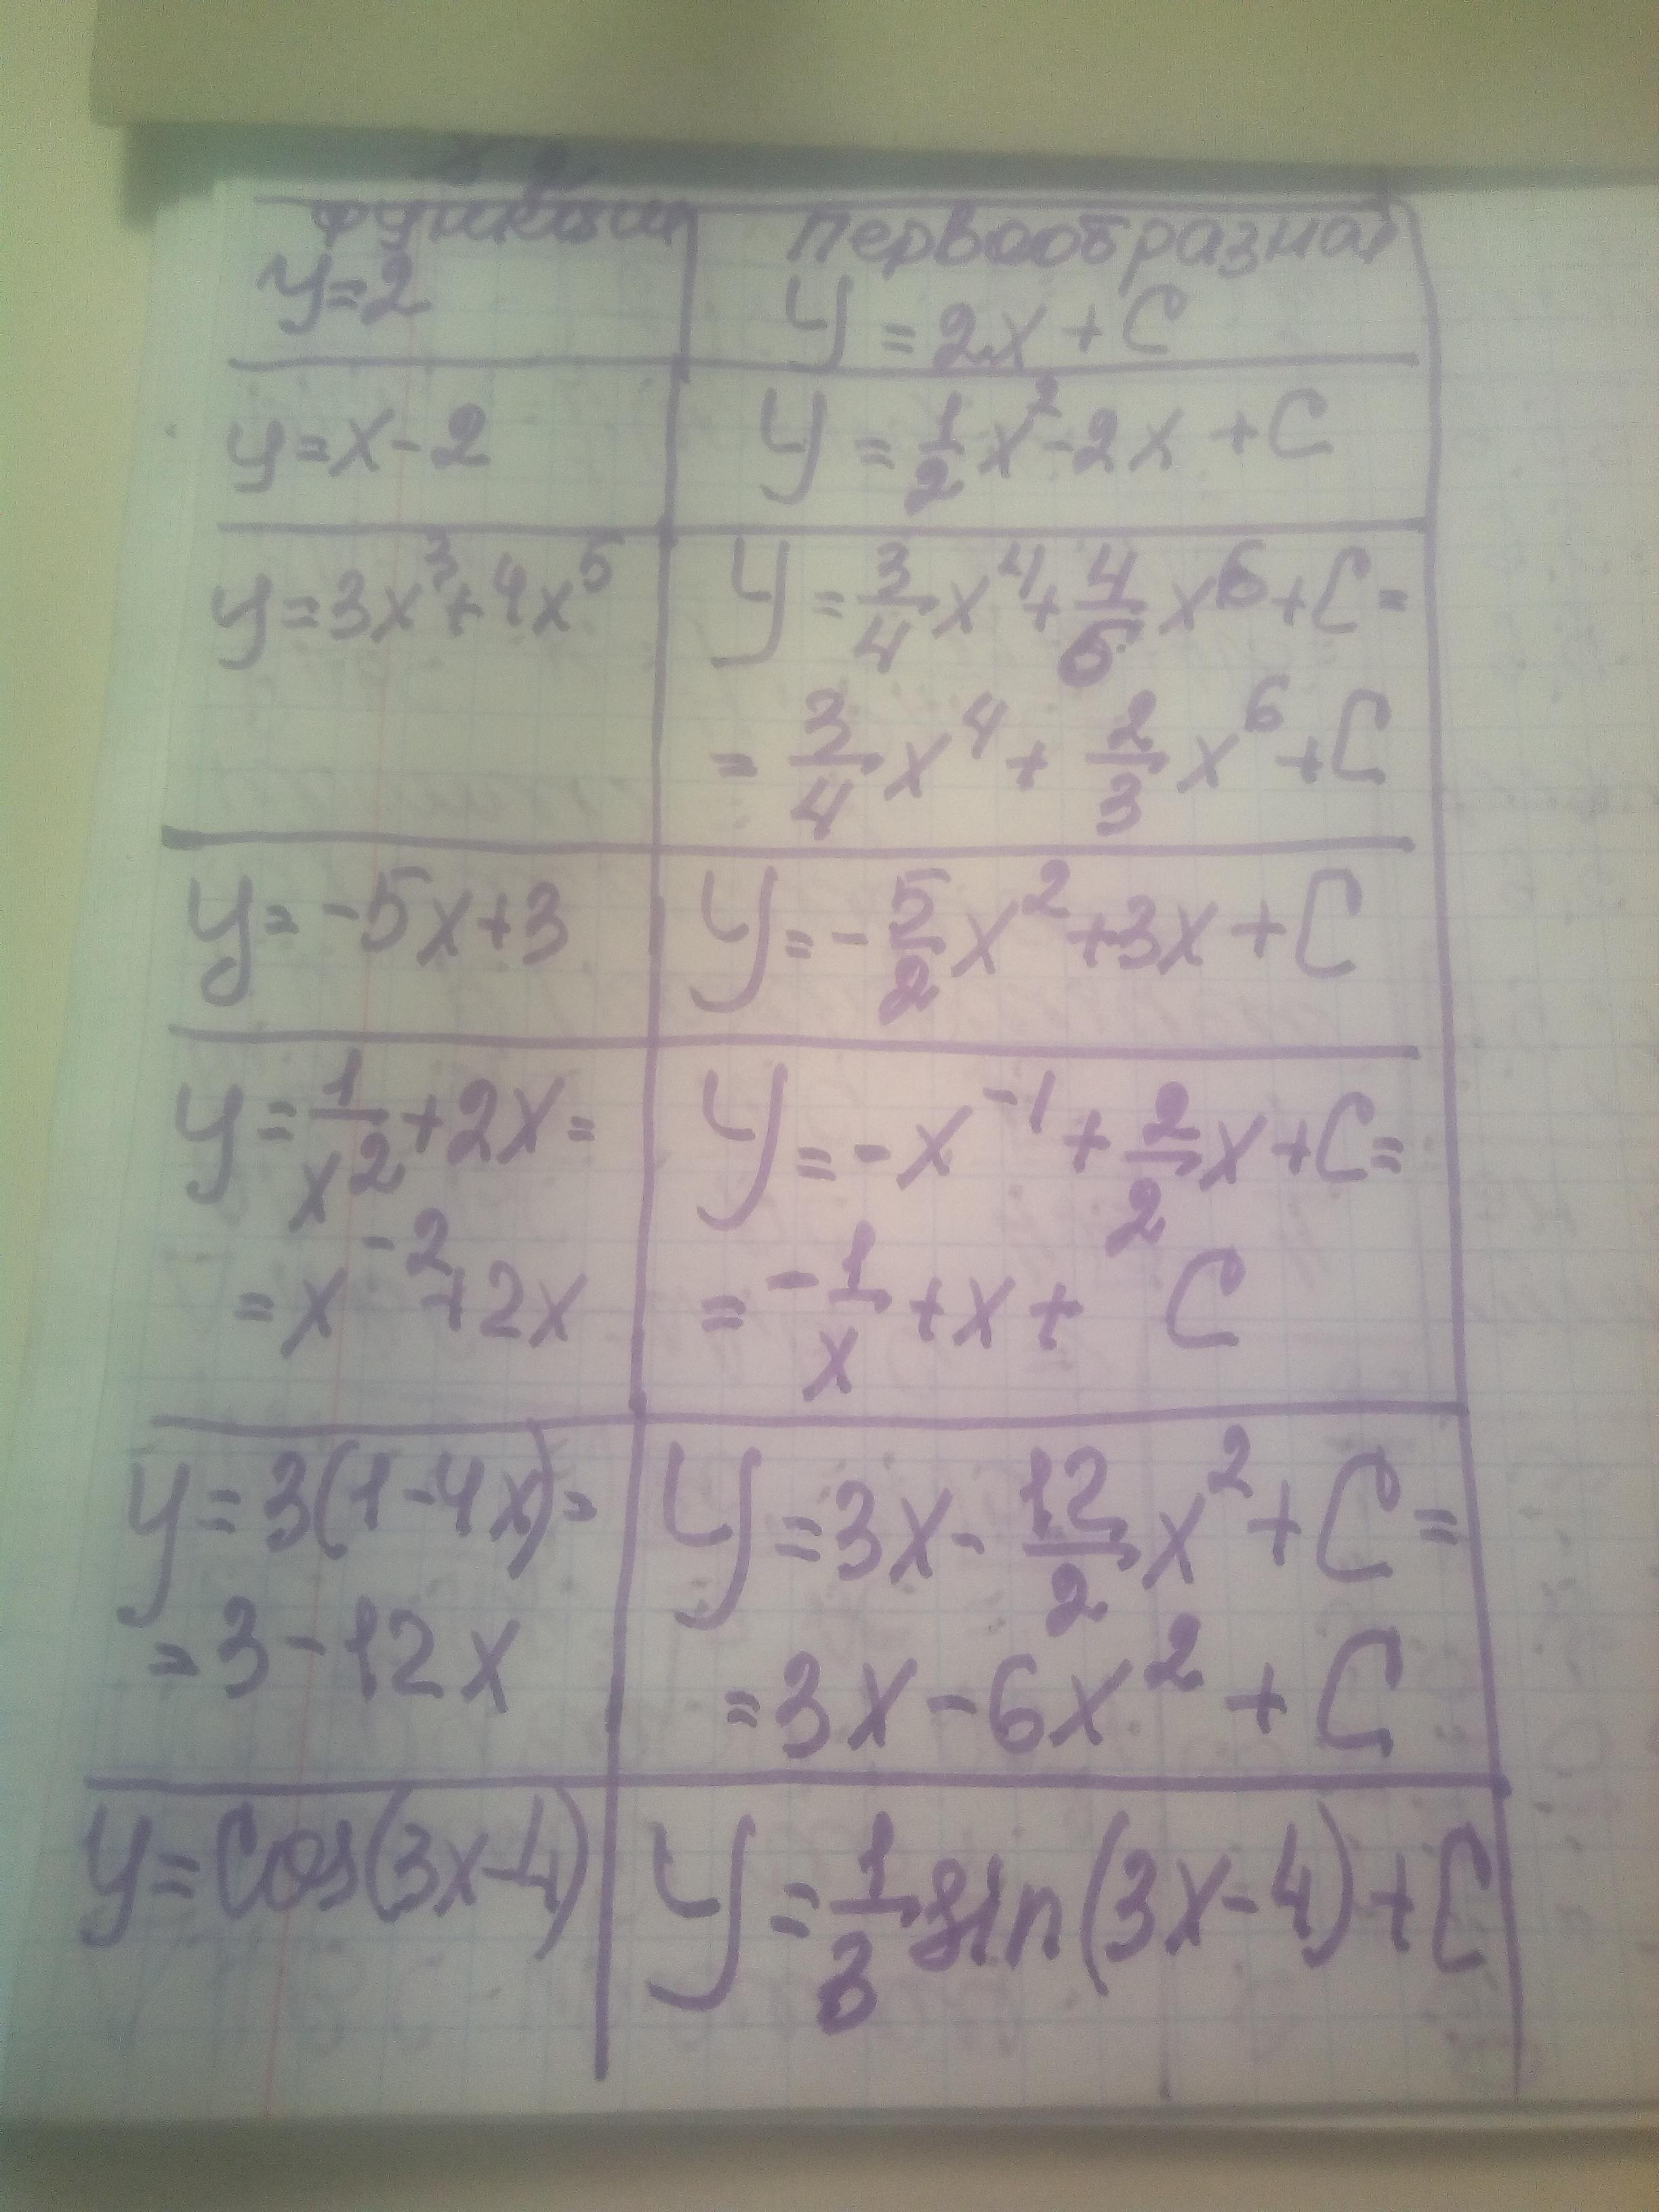 функции первообразная
y=2 y = 2x + C
y=x-2 y = 1/2 x² - 2x + C
y=3x³+4x⁵ y = 3/4 x⁴ + 4/6 x⁶ + C =
= 3/4 x⁴ + 2/3 x⁶ + C
y=-5x+3 y = -5/2 x² + 3x + C
y = 1/x² + 2x = y = -x⁻¹ + 2/2 x + C =
= x⁻² + 2x = -1/x + x + C
y = 3(1-4x) = y = 3x - 12/2 x² + C =
= 3 - 12x = 3x - 6x² + C
y = cos(3x-4) y = 1/3 sin(3x-4) + C